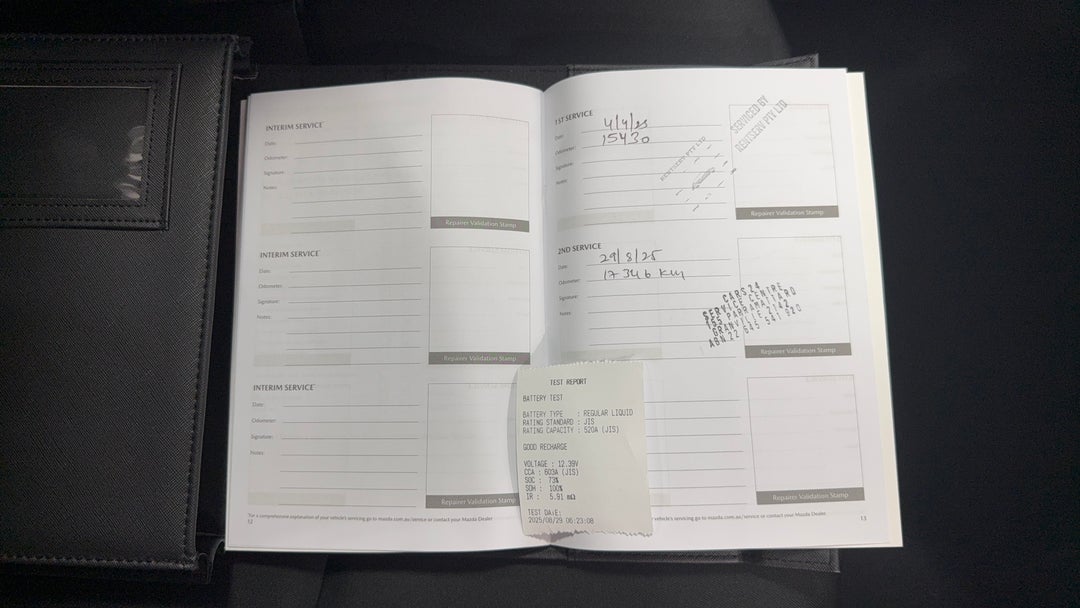 INTERIM SERVICE
Date:
Odometer:
Signature:
Notes:
Repairer Validation Stamp
INTERIM SERVICE
Date:
Odometer:
Signature:
Notes:
Repairer Validation Stamp
INTERIM SERVICE
Date:
Odometer:
Signature:
Notes:
Repairer Validation Stamp
For a comprehensive explanation of your vehicle's servicing go to mazda.com.au/service or contact your Mazda Dealer
12
1ST SERVICE
Date:
Odometer: 15430
Signature:
Notes:
RENTSERV PTY LTD
SERVICED BY
RENTSERV PTY LTD
Repairer Validation Stamp
2ND SERVICE
Date: 29/8/25
Odometer: 17346 km
Signature:
Notes:
CARS 24
SERVICE CENTRE
ABN 22 645 541 620
Repairer Validation Stamp
Repairer Validation Stamp
vehicle's servicing go to mazda.com.au/service or contact your Mazda Dealer
13
TEST REPORT
BATTERY TEST
BATTERY TYPE : REGULAR LIQUID
RATING STANDARD : JIS
RATING CAPACITY : 520A (JIS)
GOOD RECHARGE
VOLTAGE : 12.39V
CCA : 603A (JIS)
SOC : 73%
SOH : 100%
IR : 5.91 mΩ
TEST DATE:
2025/08/29 06:23:08